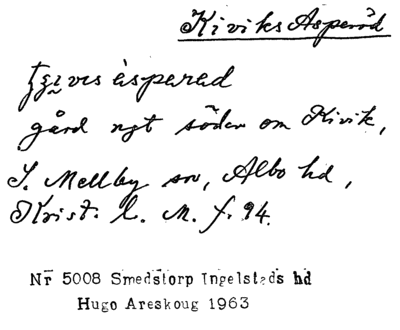 Kiviks Asperöd
åsperad
gård ngt söder om Kivik,
S. Mellby sn, Albo hd,
Krist. l. M. f. 94.
Nr 5008 Smedstorp Ingelstads hd
Hugo Areskoug 1963